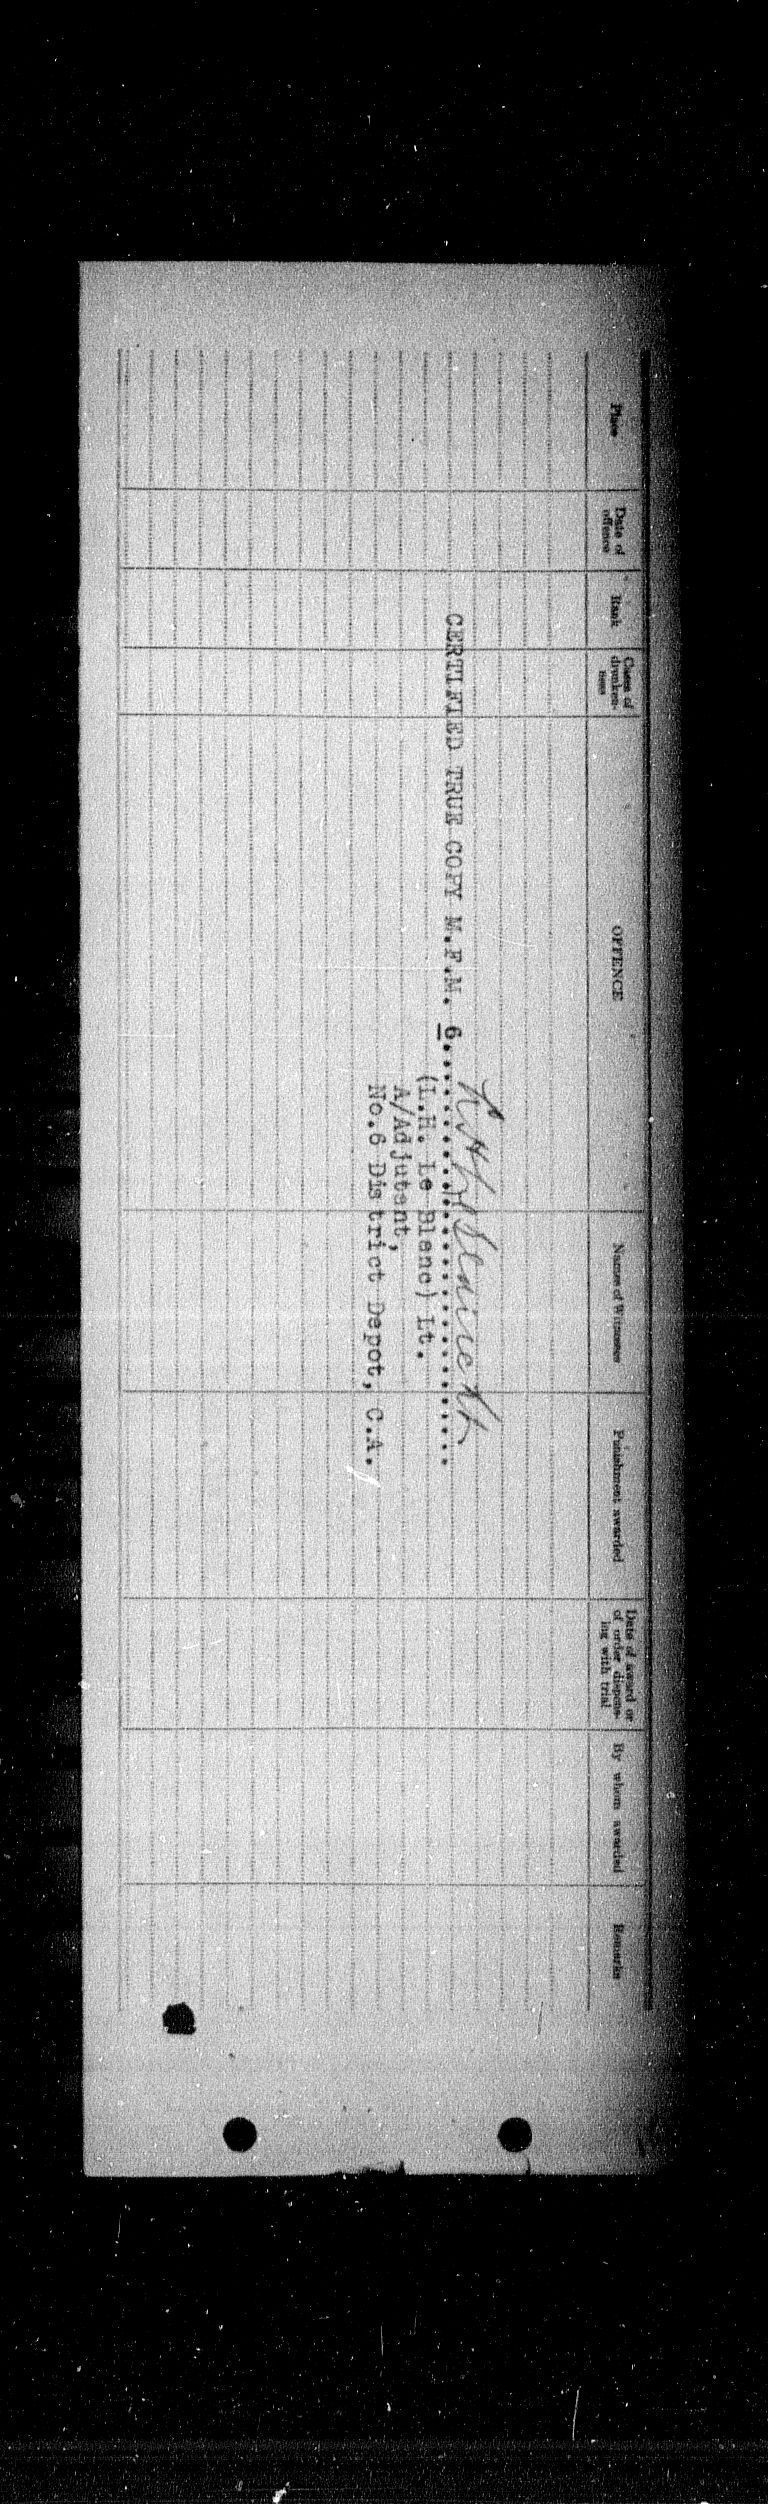 Place
Date of
offence
Rank
Cases of
drunken-
ness
OFFENCE
Names of Witnesses
Punishment awarded
Date of award or
of order dispens-
ing with trial
By whom awarded
Remarks
CERTIFIED TRUE COPY M.F.M. 6......................
(L.H. Le Blanc) Lt.
A/Adjutant,
No.6 District Depot, C.A.